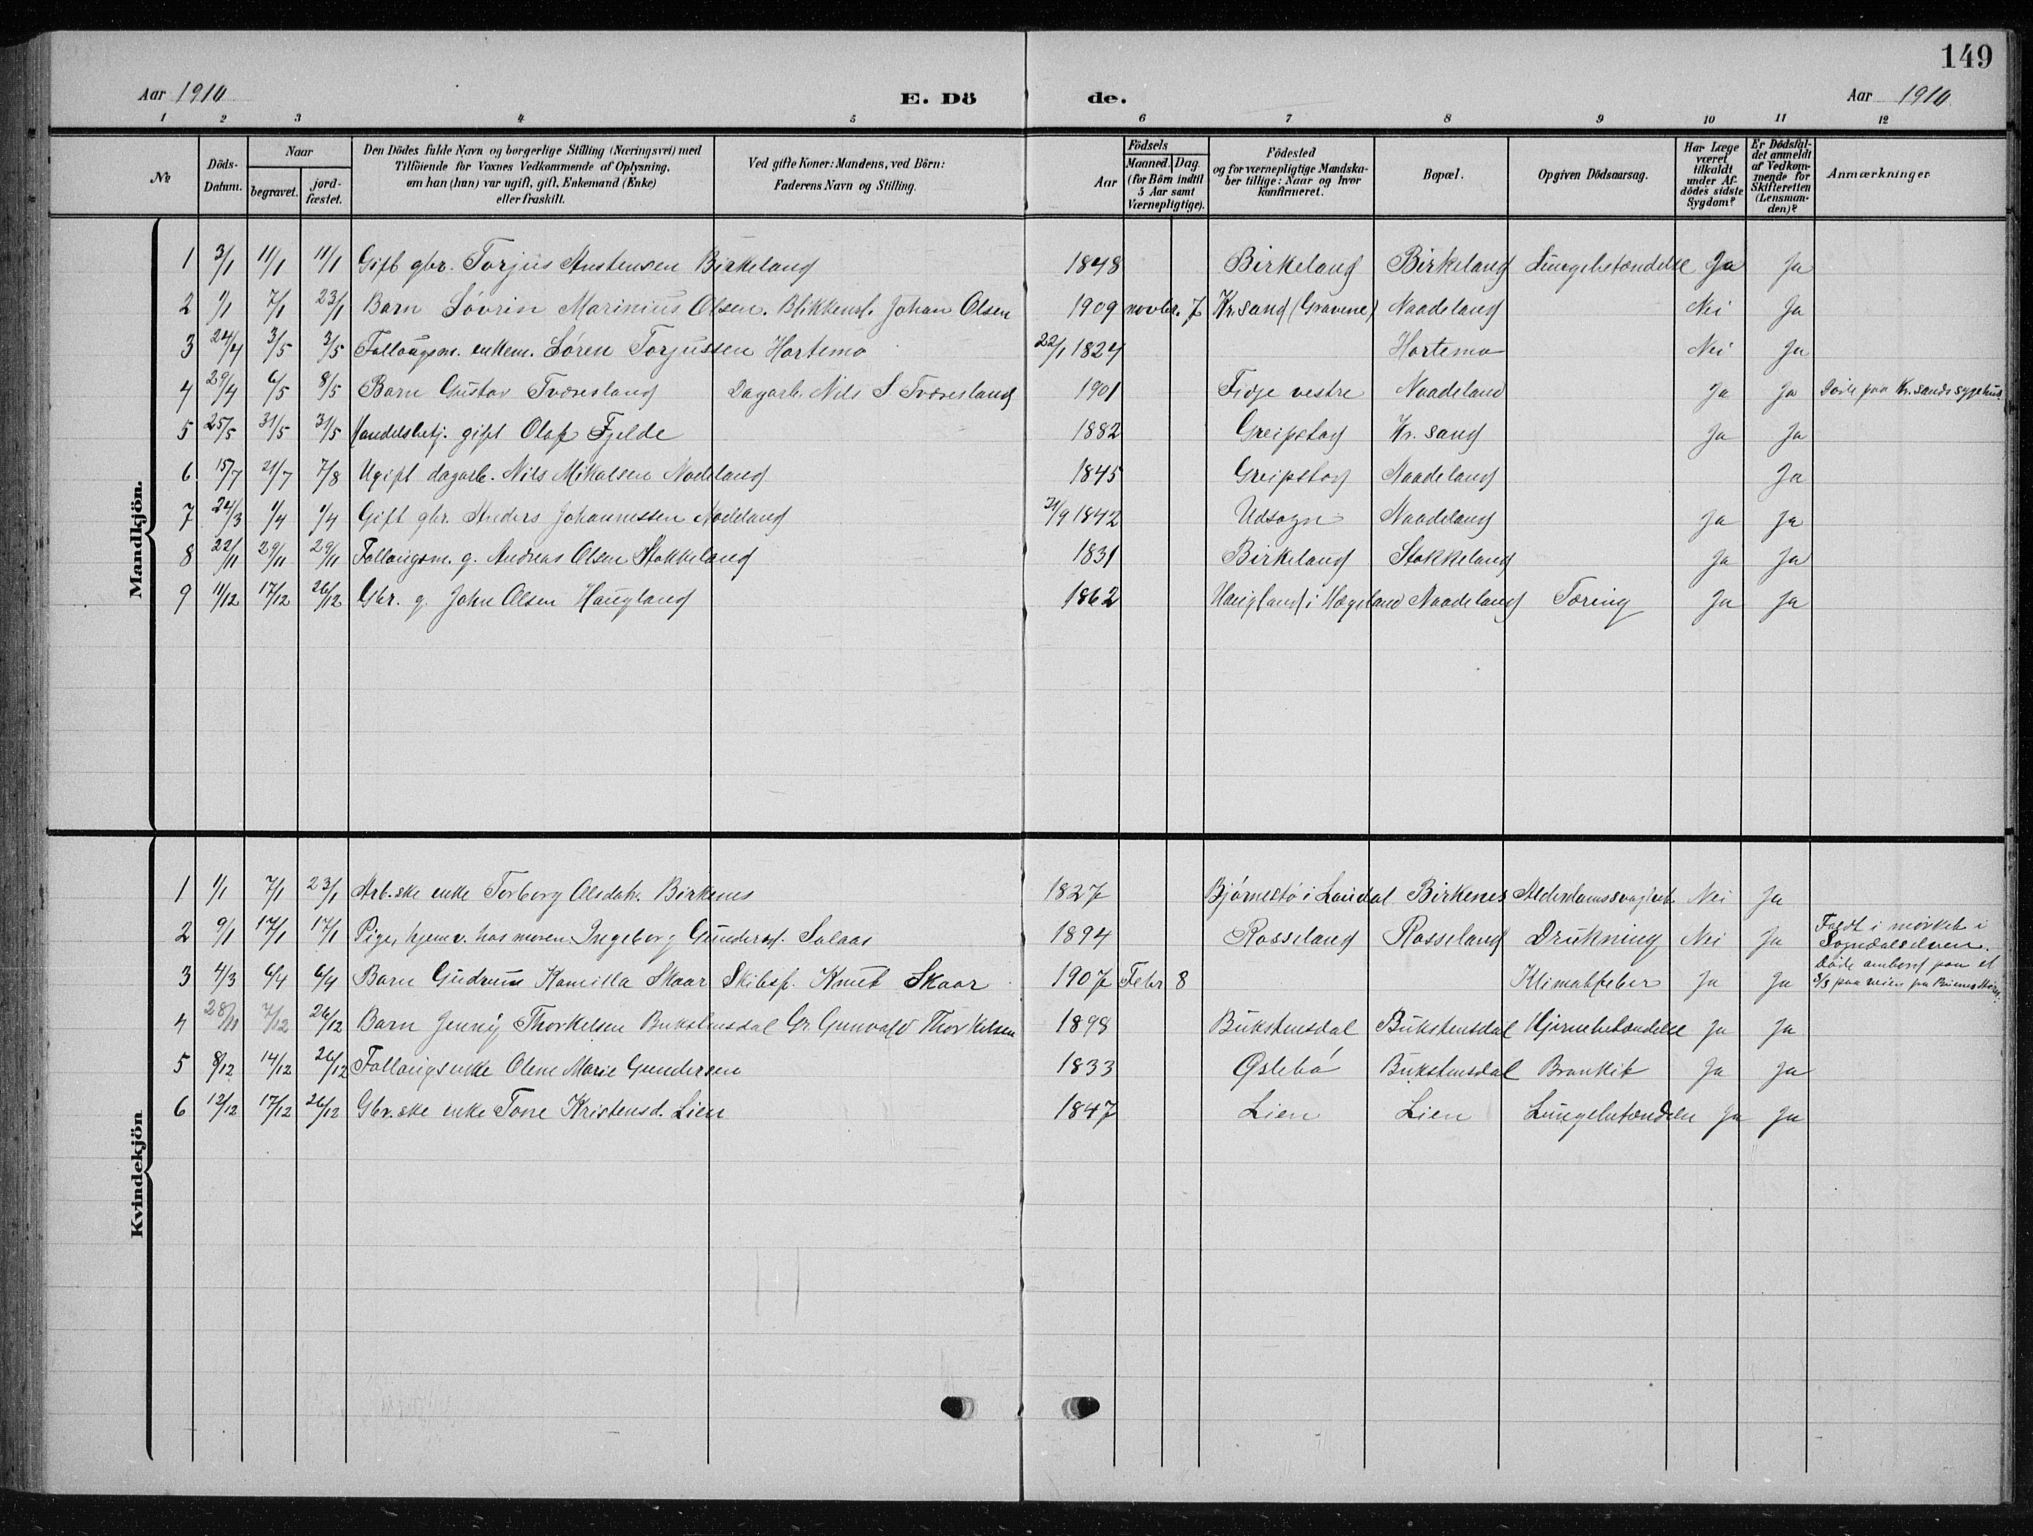 149
Aar 1910 E. Dö de. Aar 1910
1 2 3 4 5 6 7 8 9 10 11 12
№
Döds-Datum.
Naar
begravet.
jord-fæstet.
Den Dödes fulde Navn og borgerlige Stilling (Næringsvei) med
Tilföiende for Voxnes Vedkommende af Oplysning,
om han (hun) var ugift, gift, Enkemand (Enke)
eller fraskilt.
Ved gifte Koner: Mandens, ved Börn:
Faderens Navn og Stilling.
Aar
Födsels
Maaned. Dag.
(for Börn indtil
5 Aar samt
Værnepligtige).
Födested
og for værnepligtige Mandska-
ber tillige: Naar og hvor
konfirmeret.
Bopæl.
Opgiven Dödsaarsag.
Har Læge
været
tilkaldt
under Af-
dödes sidste
Sygdom?
Er Dödsfal-
det anmeldt
af Vedkom-
mende for
Skifteretten
(Lensman-
den)?
Anmærkninger
Mandkjön.
1 3/1 11/1 11/1 Gift gbr. Torjus Austensen Birkeland 1848 Birkeland Birkeland Lungebetændelse Ja Ja
2 1/1 7/1 23/1 Barn Søvrin Marinius Olsen. Blikkensl. Johan Olsen 1909 novbr. 7 Kr.sand (Gravene) Naadeland Nei Ja
3 24/4 3/5 3/5 Follaugsm. enkem. Søren Torjussen Hortemo 22/1 1824 Hortemo Nei Ja
4 29/4 6/5 8/5 Barn Gustav Tveresland Dagarb. Nils S. Tveresland 1901 Fidje vestre Naadeland Ja Ja Døde paa Kr.sands sygehus.
5 25/5 31/5 31/5 Handelsbetj. gift Olaf Fjelde 1882 Greipstad Kr. sand Ja Ja
6 15/7 21/7 7/8 Ugift dagarb. Nils Mikalsen Nodeland 1845 Greipstad Naadeland Ja
7 24/3 1/4 1/4 Gift gbr. Anders Johannessen Nodeland 1842 Udsogn Naadeland Ja Ja
8 22/11 29/11 29/11 Follaugsm. g. Andreas Olsen Stokkeland 1831 Birkeland Stokkeland Ja Ja
9 11/12 17/12 26/12 Gbr. g. John Olsen Haugland 1862 Haugland i Hægeland Naadeland Tæring Ja Ja
Kvindekjön
1 1/1 7/1 23/1 Arb.ske enke Torborg Olsdatr. Birkenes 1827 Bjørnestø i Laudal Birkenes Alderdomssvaghet Nei Ja
2 9/1 17/1 17/1 Pige, hjemv. hos moren Ingeborg Gundersd. Solaas 1894 Rosseland Rosseland Drukning Nei Ja Faldt i mørket i
Sogndalselven.
3 4/3 6/4 6/4 Barn Gudrun Kamilla Skaar Skibsf. Knut Skaar 1907 Febr 8 Klimatfeber Ja Ja Døde ombord paa et
paa veien fra Buenos Aires.
4 28/11 7/12 26/12 Barn Jenny Thorkelsen Bukstensdal Gr. Gunvald Thorkelsen 1898 Bukstensdal Bukstensdal Hjernebetændelse Ja Ja
5 8/12 14/12 26/12 Follaugsenke Olene Marie Gundersen 1833 Øslebø Bukstensdal Bronkit Ja Ja
6 12/12 17/12 26/12 Gbr.ske enke Tone Kristensd. Lien 1847 Lien Lien Lungebetændelse Ja Ja